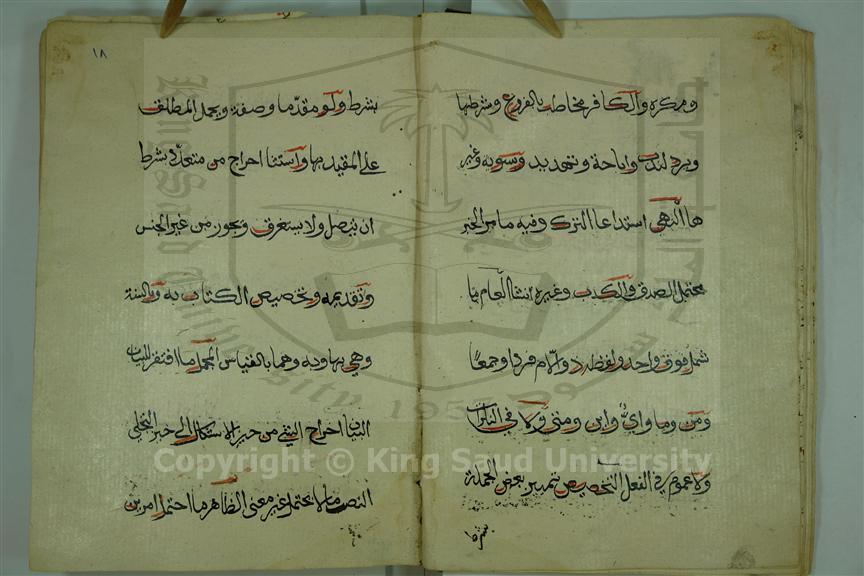 ومكره والكافر مخاطب بالفروع وشرطها
ويرد لندب واباحة وتهديد وتسوية وغير
ها النهي استدعا الترك وفيه ما مر الخبر
يحتمل الصدق والكذب وغيره انشا العام ما
شمل فوق واحد ولفظه ذو اللام فردا وجمعا
ومن وما واي واين ومتى ولا في النكرات
ولا عموم في الفعل التخصيص تمييز بعض الجملة
بشرط
١٨
بشرط ولو مقدما وصفة ويحمل المطلق
على المقيد بها واستثنا اخراج من متعدد بشرط
ان يتصل ولا يستغرق ويجوز من غير الجنس
وتقديمه وتخصيص الكتاب به وبالسنة
وهي بها وبه وهما بالقياس المجمل ما افتقر للبيان
البيان اخراج الشي من حيز الاشكال الى حيز التجلي
النص ما لا يحتمل غير معنى الظاهر ما احتمل امرين
Copyright © King Saud University